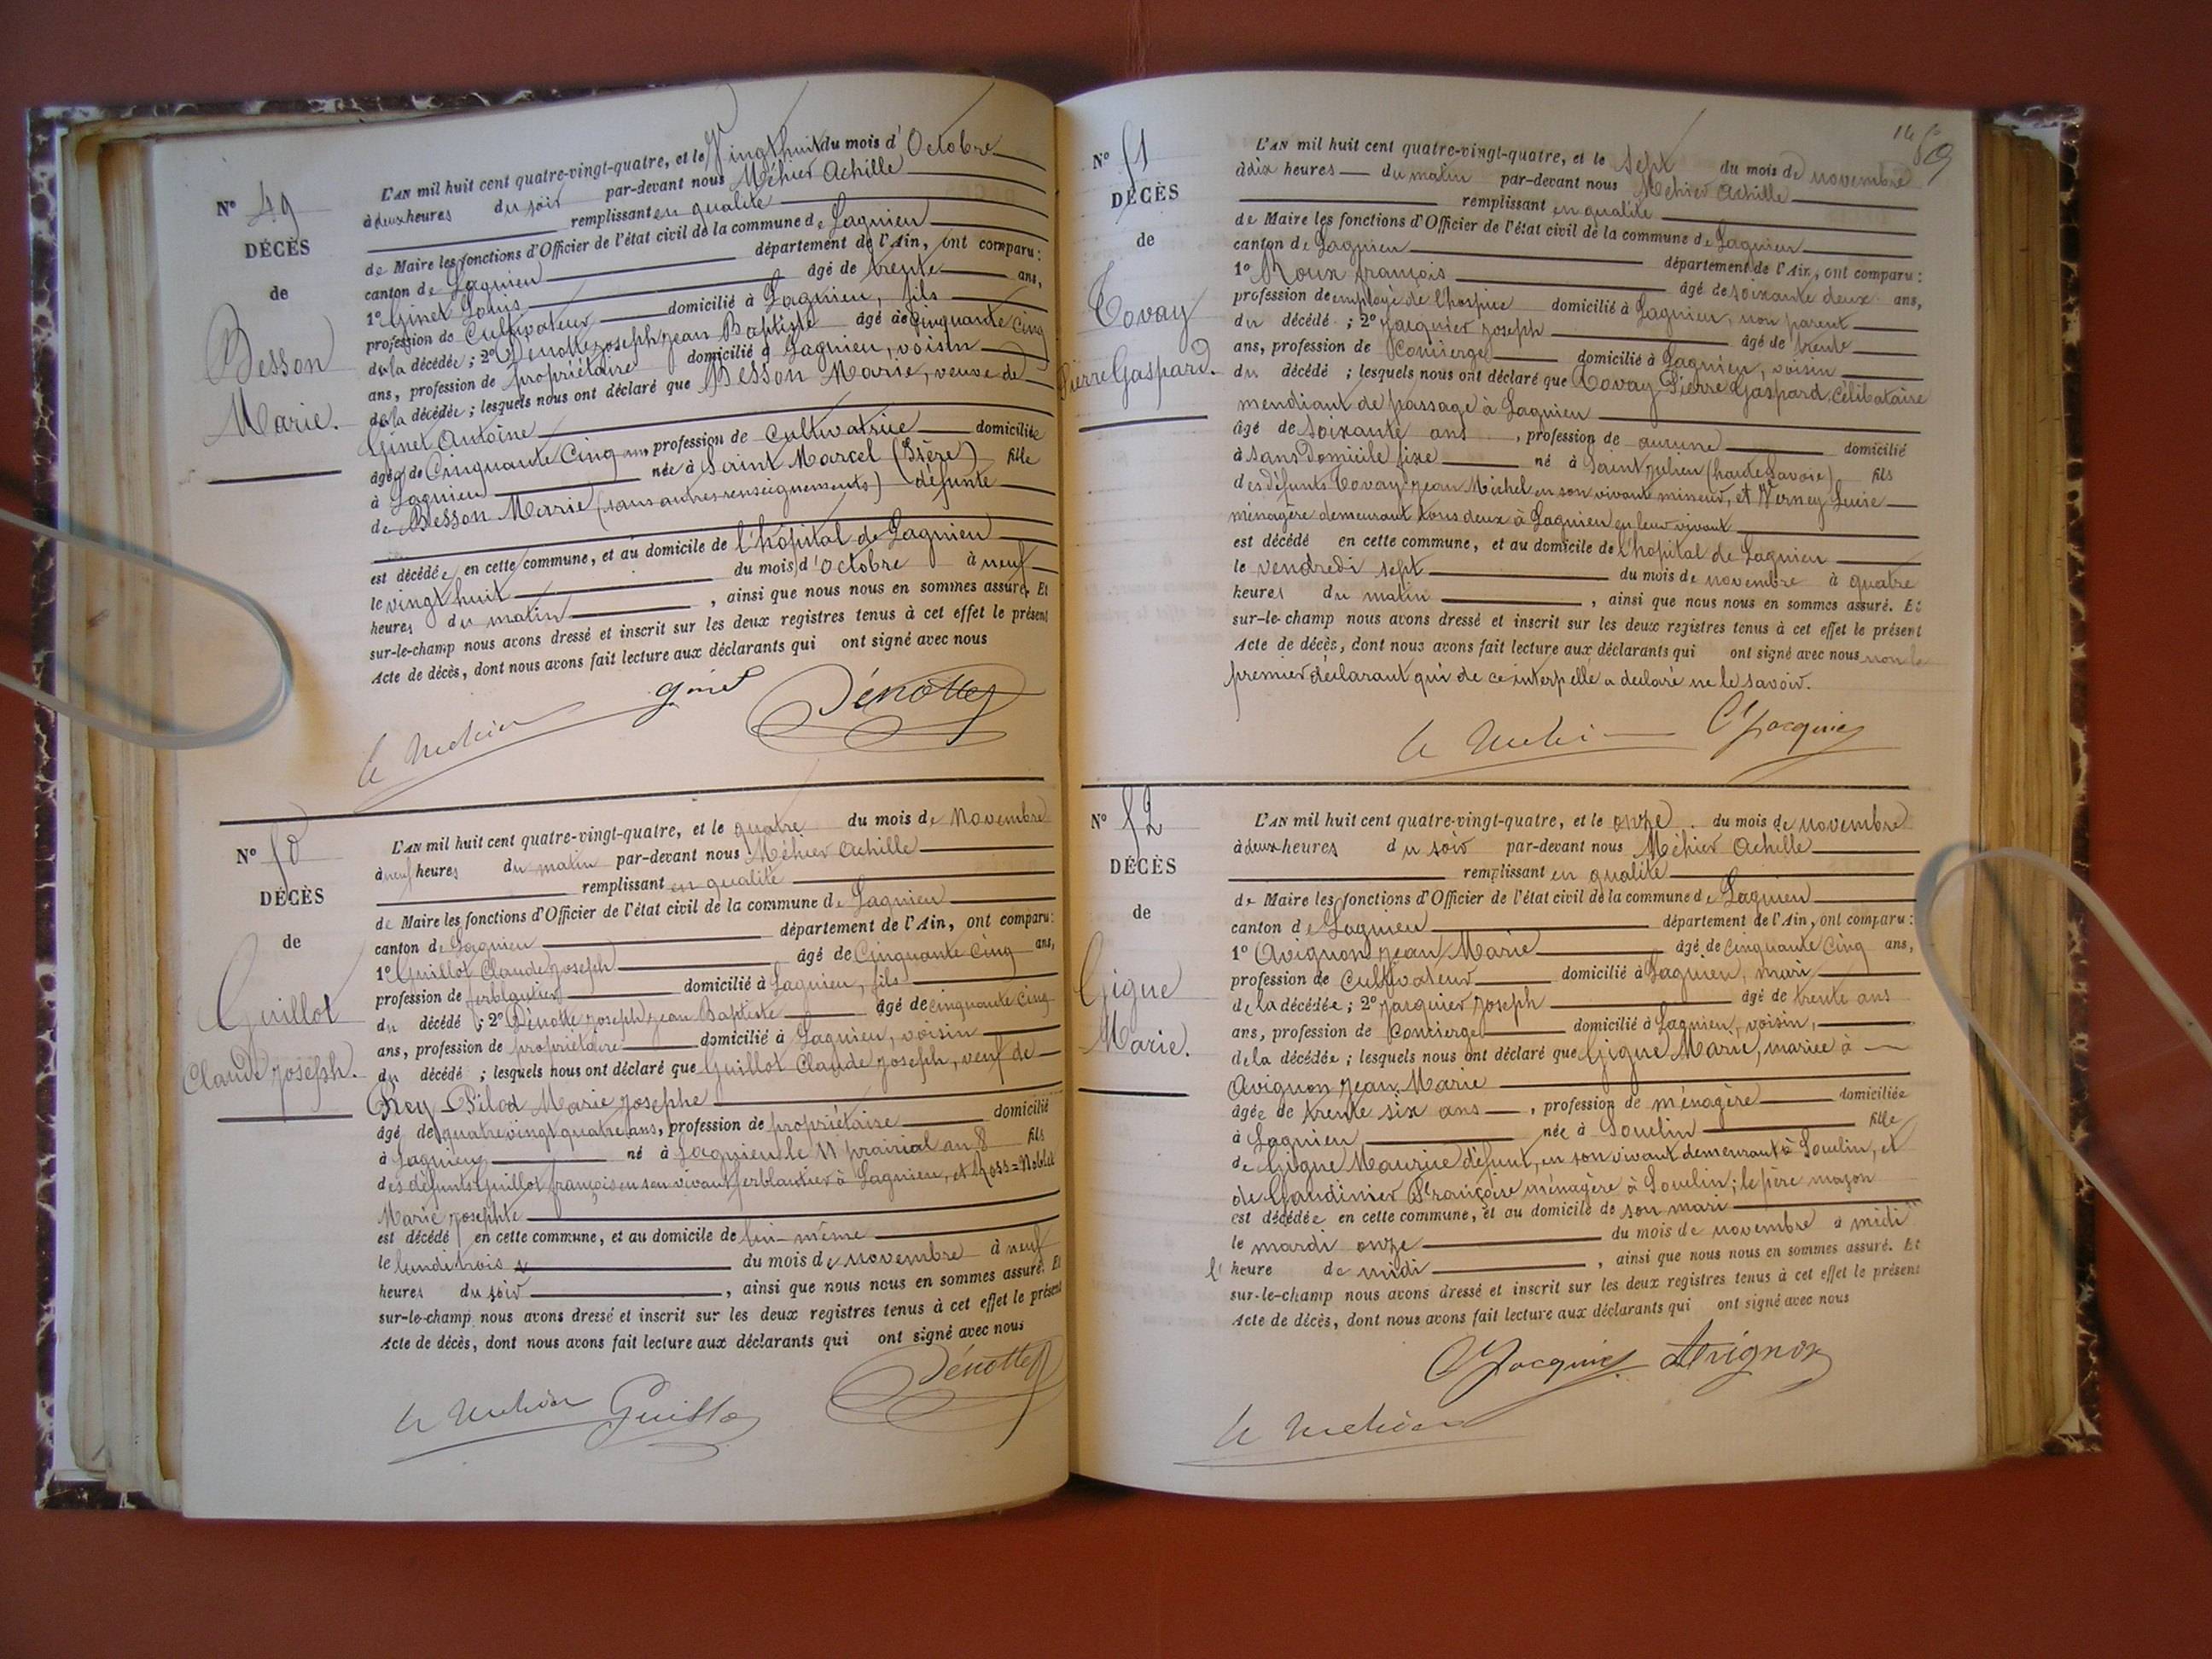 N° 49
DÉCÈS
de
Besson
Marie.
L'AN mil huit cent quatre-vingt-quatre, et le Vingt huit du mois d'Octobre
à deux heures du soir par-devant nous Méhier Achille
remplissant en qualité
de Maire les fonctions d'Officier de l'état civil de la commune de Lagnieu
canton de Lagnieu département de l'Ain, ont comparu :
1° Ginet Louis âgé de trente ans,
profession de Cultivateur domicilié à Lagnieu, fils
de la décédée ; 2° Dénotte Joseph Jean Baptiste âgé de Cinquante Cinq
ans, profession de propriétaire domicilié à Lagnieu, voisin
de la décédée ; lesquels nous ont déclaré que Besson Marie, veuve de
Ginet Antoine
âgée de Cinquante Cinq ans, profession de Cultivatrice domiciliée
à Lagnieu née à Saint Marcel (Isère) fille
de Besson Marie (sans autres renseignements) défunte
est décédée en cette commune, et au domicile de l'hôpital de Lagnieu
le vingt huit du mois d'Octobre à neuf
heures du matin, ainsi que nous nous en sommes assuré. Et
sur-le-champ nous avons dressé et inscrit sur les deux registres tenus à cet effet le présent
Acte de décès, dont nous avons fait lecture aux déclarants qui ont signé avec nous
Ginet Dénotte
N° 50
DÉCÈS
de
Guillot
Claude Joseph.
L'AN mil huit cent quatre-vingt-quatre, et le quatre du mois de Novembre
à neuf heures du matin par-devant nous Méhier Achille
remplissant en qualité
de Maire les fonctions d'Officier de l'état civil de la commune de Lagnieu
canton de Lagnieu département de l'Ain, ont comparu :
1° Guillot Claude Joseph âgé de Cinquante Cinq ans,
profession de ferblantier domicilié à Lagnieu, fils
du décédé ; 2° Dénotte Joseph Jean Baptiste âgé de cinquante cinq
ans, profession de propriétaire domicilié à Lagnieu, voisin
du décédé ; lesquels nous ont déclaré que Guillot Claude Joseph, veuf de
Rey-Pilod Marie Josephe
âgé de quatre vingt quatre ans, profession de propriétaire domicilié
à Lagnieu né à Lagnieu le 11 prairial an 8 fils
des défunts Guillot françois en son vivant ferblantier à Lagnieu, et
Marie Josephte
est décédé en cette commune, et au domicile de lui-même
le lundi trois du mois de novembre à neuf
heures du soir, ainsi que nous nous en sommes assuré. Et
sur-le-champ nous avons dressé et inscrit sur les deux registres tenus à cet effet le présent
Acte de décès, dont nous avons fait lecture aux déclarants qui ont signé avec nous
Guillot Dénotte
N° 51
DÉCÈS
de
Tovay
Pierre Gaspard.
L'AN mil huit cent quatre-vingt-quatre, et le Sept du mois de novembre
à dix heures du matin par-devant nous Méhier Achille
remplissant en qualité
de Maire les fonctions d'Officier de l'état civil de la commune de Lagnieu
canton de Lagnieu département de l'Ain, ont comparu :
1° Roux françois âgé de soixante deux ans,
profession de employé de l'hospice domicilié à Lagnieu, non parent
du décédé ; 2° Jacquier Joseph âgé de trente
ans, profession de Concierge domicilié à Lagnieu, voisin
du décédé ; lesquels nous ont déclaré que Tovay Pierre Gaspard, célibataire
mendiant de passage à Lagnieu
âgé de Soixante ans, profession de aucune domicilié
à sans Domicile fixe né à Saint Julien (haute Savoie) fils
des défunts Tovay Jean Michel en son vivant mineur, et Verney Luise
ménagère demeurant tous deux à Lagnieu en leur vivant
est décédé en cette commune, et au domicile de l'hopital de Lagnieu
le vendredi sept du mois de novembre à quatre
heures du matin, ainsi que nous nous en sommes assuré. Et
sur-le-champ nous avons dressé et inscrit sur les deux registres tenus à cet effet le présent
Acte de décès, dont nous avons fait lecture aux déclarants qui ont signé avec nous non le
premier déclarant qui de ce interpellé a déclaré ne le savoir.
Jacquier
N° 52
DÉCÈS
de
Gigue
Marie.
L'AN mil huit cent quatre-vingt-quatre, et le onze du mois de novembre
à deux heures du soir par-devant nous Méhier Achille
remplissant en qualité
de Maire les fonctions d'Officier de l'état civil de la commune de Lagnieu
canton de Lagnieu département de l'Ain, ont comparu :
1° Avignon Jean Marie âgé de cinquante cinq ans,
profession de Cultivateur domicilié à Lagnieu, mari
de la décédée ; 2° Jacquier Joseph âgé de trente ans
ans, profession de Concierge domicilié à Lagnieu, voisin,
de la décédée ; lesquels nous ont déclaré que Gigue Marie, mariée à
Avignon Jean Marie
âgée de trente six ans, profession de ménagère domiciliée
à Lagnieu née à Soudin fille
de Gigue Maurice défunt, en son vivant demeurant à Soudin, et
de Gaudinier Françoise ménagère à Soudin ; le père maçon
est décédée en cette commune, et au domicile de son mari
le mardi onze du mois de novembre à midi
heure de midi, ainsi que nous nous en sommes assuré. Et
sur-le-champ nous avons dressé et inscrit sur les deux registres tenus à cet effet le présent
Acte de décès, dont nous avons fait lecture aux déclarants qui ont signé avec nous
Jacquier Avignon